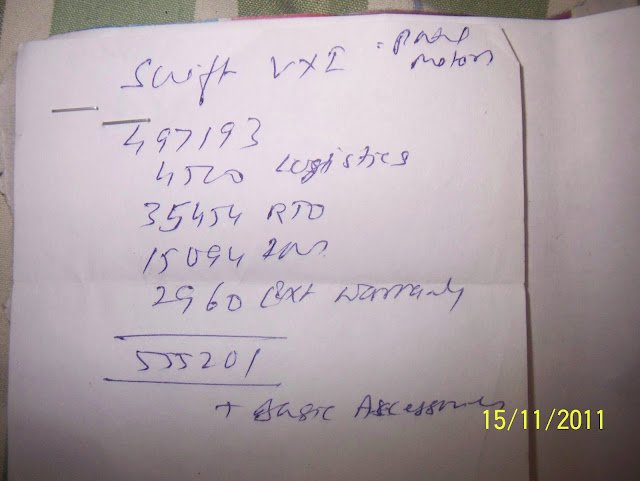 Swift VXI : Patel
Motors
497193
4500 Logistics
35454 RTO
15094 Ins.
2960 Ext Warranty
555201
+ Basic Accessories
15/11/2011